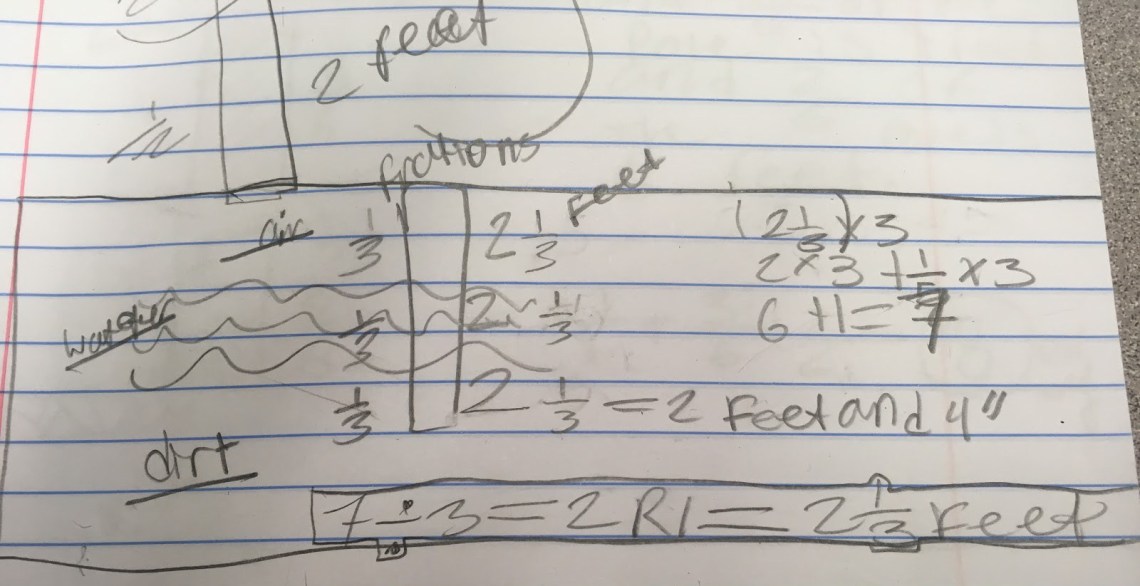 2 feet
1/2
fractions
air 1/3 2 1/3 Feet (2 1/3) x 3
2 x 3 + 1/3 x 3
water 1/3 2 1/3 6 + 1 = 7
1/3 2 1/3 = 2 Feet and 4"
dirt
7 ÷ 3 = 2 R1 = 2 1/3 Feet